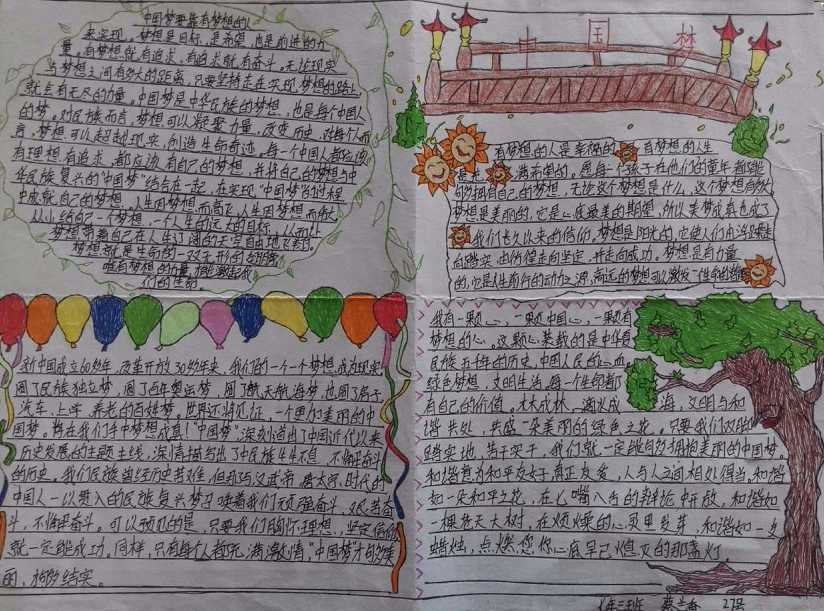 中国梦要靠有梦想的人
来实现。梦想是目标,是希望,也是前进的力
量。有梦想就有追求,有追求就有奋斗,无论现实
与梦想之间有多大的距离,只要坚持走在实现梦想的路上,
就会有无尽的力量。中国梦是中华民族的梦想,也是每个中国人
的梦。对民族而言,梦想可以凝聚力量,改变历史,对每个人而
言,梦想可以超越现实,创造生命奇迹。每一个中国人都应该
有理想有追求,都应该有自己的梦想,并将自己的梦想与中
华民族复兴的“中国梦”结合在一起,在实现“中国梦”的过程
中成就自己的梦想。人生因梦想而高飞,人生因梦想而伟大
从小给自己一个梦想,一个人生的远大的目标,从而让
梦想带着自己在人生辽阔的天空自由地飞翔。
梦想就是生命的一双无形的翅膀
唯有梦想的力量,才能激起我
们的生命。
中国梦
有梦想的人是幸福的,有梦想的人生
是充满希望的。愿每一个孩子在他们的童年都能
够拥有自己的梦想,无论这个梦想是什么,这个梦想
梦想是美丽的,它是心底最美的期望,所以美梦成真也成了
我们长久以来的信仰。梦想是阳光的,它使人们由浮躁走
向踏实,由彷徨走向坚定,并走向成功。梦想是有力量
的,它是人生前行的动力之源,高远的梦想可以激发
新中国成立60多年,改革开放30多年来,我们的一个个梦想成为现实
圆了民族独立梦,圆了百年奥运梦,圆了航天航海梦,也圆了房子
汽车、上学、养老的百姓梦。世界还将见证,一个更加美丽的中
国梦。将在我们手中梦想成真!“中国梦”深刻道出了中国近代以来
历史发展的主题主线,深情描绘出了中华民族生生不息、不懈奋斗
的历史。我们民族曾经历苦难,但那与汉武帝、唐太宗时代的
中国人一以贯之的民族复兴梦召唤着我们顽强奋斗,艰苦奋
斗,不懈奋斗。可以预见的是,只要我们胸怀理想,坚定信仰
就一定能成功。同样,只有每个人都充满激情,“中国梦”才够美
丽,才够结实。
我有一颗心,一颗中国心,一颗有
梦想的心。这颗心装载的是中华
民族五千年的历史,中国人民的心血
绿色梦想,文明生活,每一个生命都
有自己的价值。木木成林,滴水成海,文明与和
谐共处,共盛一朵美丽的绿色之花,只要我们以
踏实地,苦干实干,我们就一定能够拥抱美丽的中国梦。
和谐意为和平友好,真正友爱,人与人之间相处得当。和谐
如一朵和平之花,在七嘴八舌的辩论中开放,和谐如
一棵参天大树,在烦燥的心灵里发芽,和谐如一支
蜡烛,点燃您你心底早已熄灭的那盏灯
年三班 蔡兰香 27号